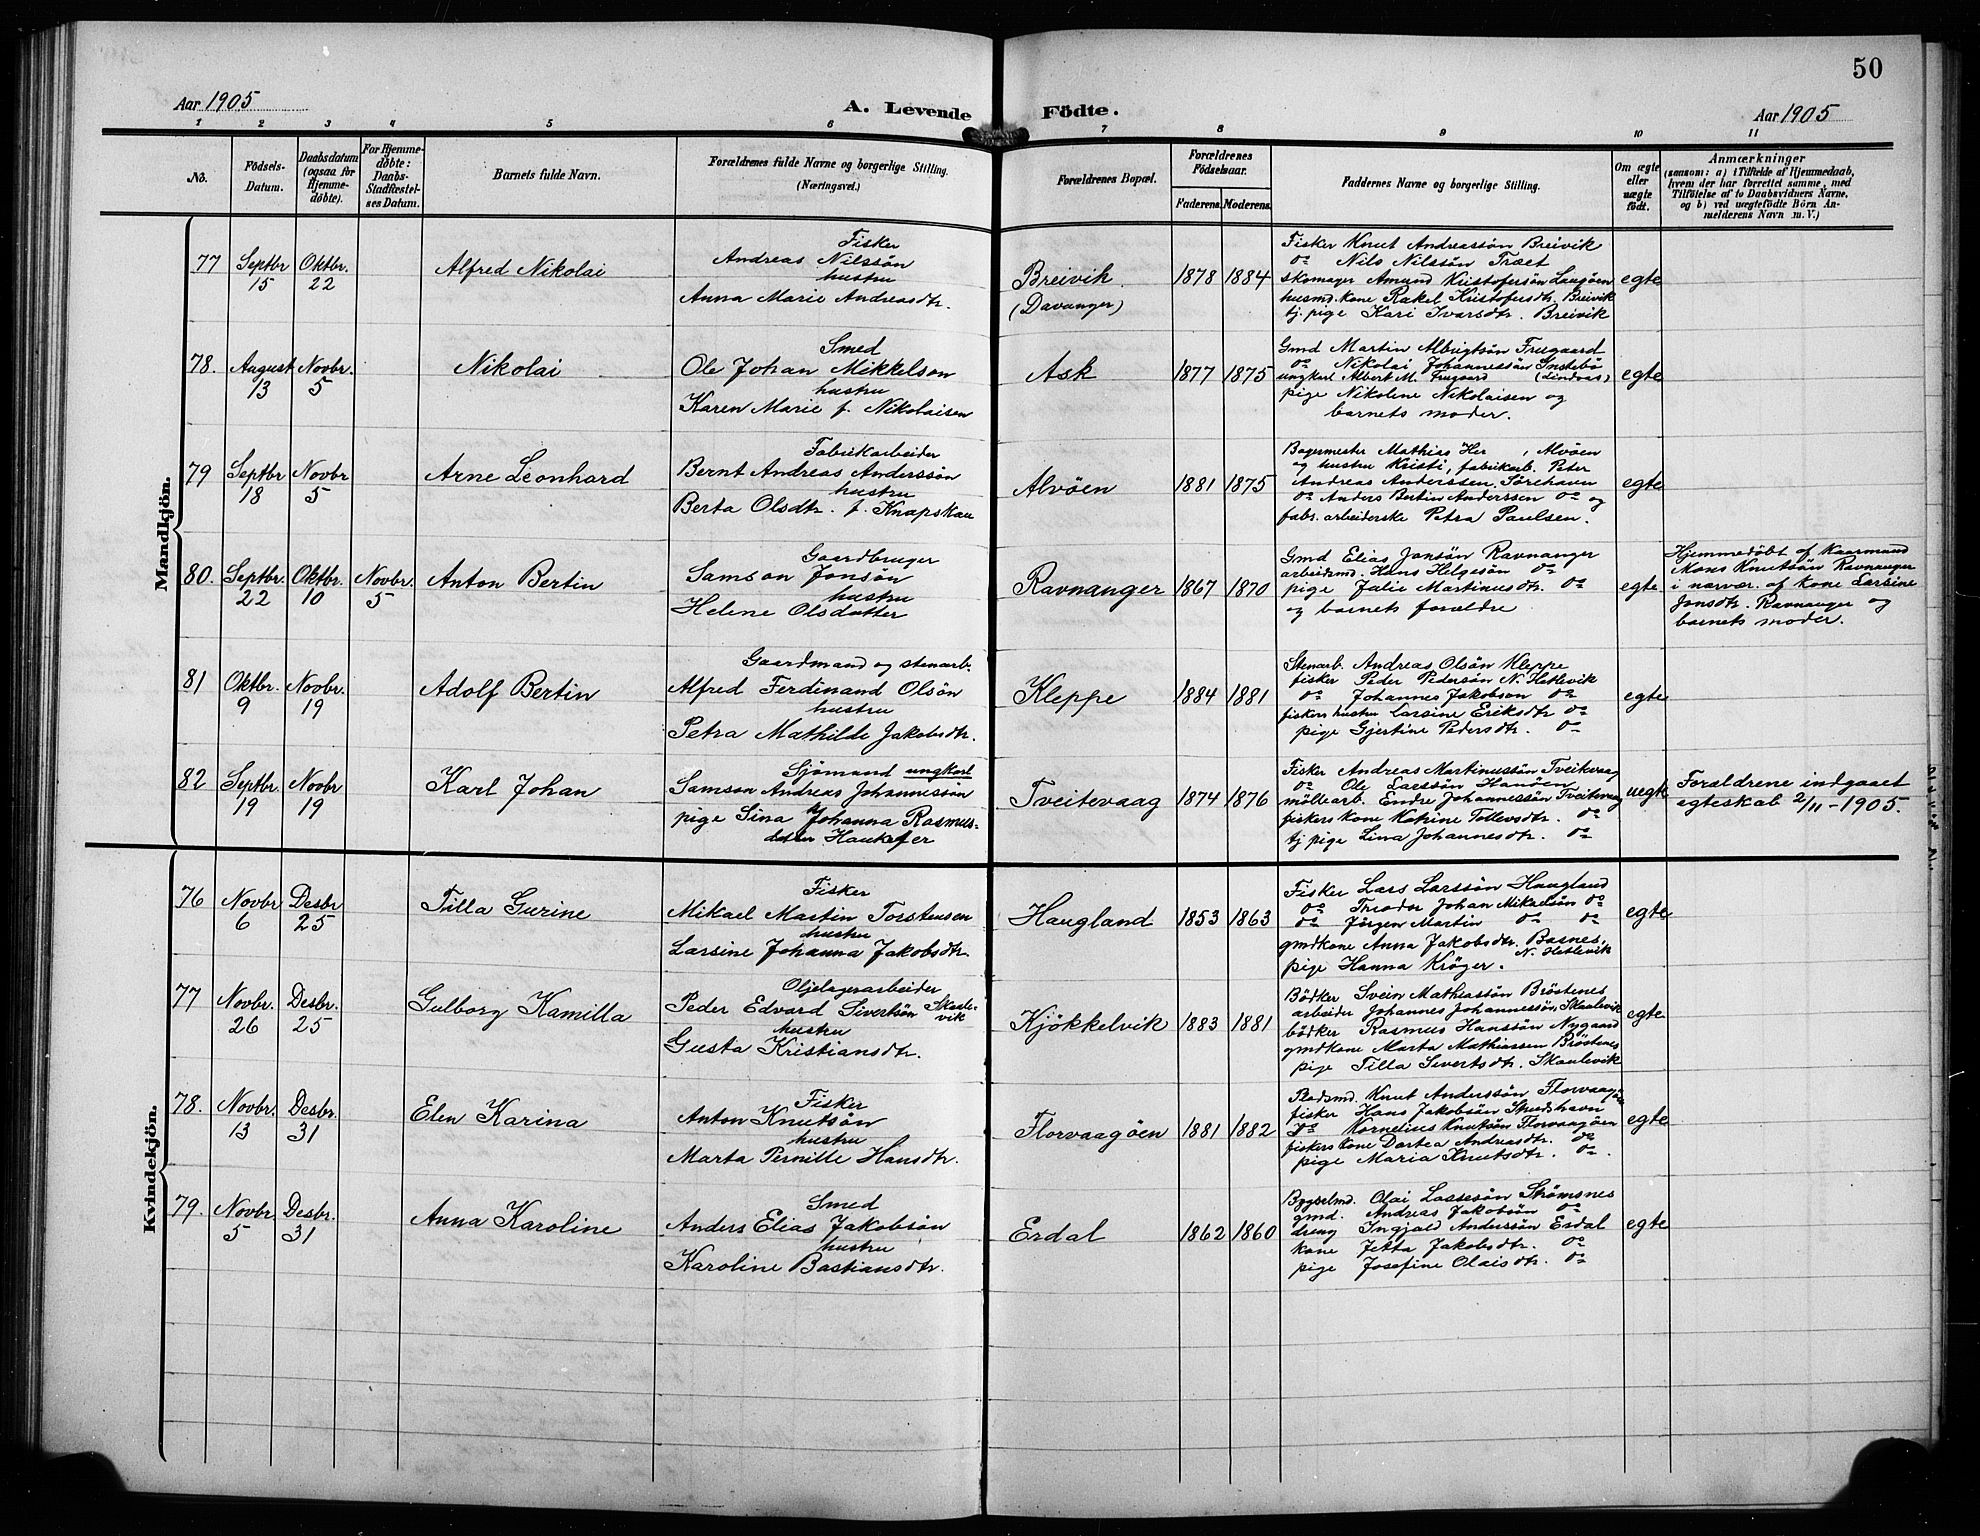 50
Aar 1905
A. Levende
Födte.
Aar 1905
1
2
3
4
5
6
7
8
9
10
11
No.
Födsels-
Datum.
Daabsdatum
(ogsaa for
Hjemme-
döbte).
For Hjemme-
döbte:
Daabs-
Stadfæstel-
ses Datum.
Barnets fulde Navn.
Forældrenes fulde Navne og borgerlige Stilling.
(Næringsvei.)
Forældrenes Bopæl.
Forældrenes
Födselsaar.
Faderens.
Moderens.
Faddernes Navne og borgerlige Stilling.
Om ægte
eller
uægte
födt.
Anmærkninger
(saasom: a) i Tilfælde af Hjemmedaab,
hvem der har forrettet samme, med
Tilföielse af to Daabsvidners Navne,
og b) ved uægtefödte Börn An-
melderens Navn m. V.)
Mandkjön.
77
Septbr
15
Oktbr.
22
Alfred Nikolai
Fisker
Andreas Nilssön
hustru
Anna Marie Andreasdtr.
Breivik
(Davanger)
1878
1884
Fisker Knut Andreassön Breivik
do Nils Nilssön Træt
skomager Amund Kristofersön
husmd. kone Rakel Kristofersdtr. Breivik
tj. pige Kari Ivarsdtr. Breivik
egte
78.
August
13
Novbr.
5
Nikolai
Smed
Ole Johan Mikkelson
hustru
Karen Marie f. Nikolaisen
Ask
1877
1875
Gmd Martin Albrigtsön Frugaard
do Nikolai Johannessön
ungkarl Albert M. Frugaard (Lindaas)
pige Nikoline Nikolaisen og
barnets moder.
egte
79
Septbr
18
Novbr
5
Arne Leonhard
Fabrikarbeider
Bernt Andreas Anderssön
hustru
Berta Olsdtr. f. Knapskau
Alvöen
1881
1875
Bagermester Mathias Her , Alvöen
og hustru Kristi, fabrikarb. Peter
Andreas Anderssen. Sörehavn
do Anders Bertin Anderssen do og
fabr. arbeiderske Petra Paulsen.
egte
80.
Septbr.
22
Oktbr.
10
Novbr.
5
Anton Bertin
Gaardbruger
Samson Jonsön
hustru
Helene Olsdatter
Ravnanger
1867
1870
Gmd Elias Jonsön Ravnanger
arbeidsmd. Hans Helgesön do
pige Julie Martinusdtr. do
og barnets forældre
egte
Hjemmedöbt af Kaarmand
Mons Knutsön Ravnanger
i nærvær. af kone Larsine
Jonsdtr. Ravnanger og
barnets moder.
81
Oktbr.
9
Novbr.
19
Adolf Bertin
Gaardmand og stenarb.
Alfred Ferdinand Olsön
hustru
Petra Mathilde Jakobsdtr.
Kleppe
1884
1881
Stenarb. Andreas Olsön Kleppe
fisker Peder Pedersön N. Hetlevik
do Johannes Jakobson do
fiskers hustru Larsine Eriksdtr do
pige Gjertine Pedersdtr. do
egte
82
Septbr.
19
Novbr
19
Karl Johan
Sjömand ungkarl
Samson Andreas Johannessön
pige Sina Johanna Rasmus-
datter
Tveitevaag
1874
1876
Fisker Andreas Martinussön Tveitevaag
do Ole Larssön
möllearb. Endre Johannessön Tveitevaag
fiskers kone Katrine Tollevsdtr. do
tj pige Lina Johannesdtr. do
uegte
Forældrene indgaaet
egteskab 2/11-1905.
Kvindekjön.
76
Novbr.
6
Desbr
25
Tilla Gurine
Fisker
Mikael Martin Torstensen
hustru
Larsine Johanna Jakobsdtr.
Haugland
1853
1863
Fisker Lars Larssön Haugland
do Theodor Johan Mikalsön do
do Jörgen Martin do do
gmdkone Anna Jakobsdtr. Basnes,
pige Hanna Kröger. N. Hetlevik
egte
77
Novbr.
26
Desbr.
25
Gulborg Kamilla
Oljelagerarbeider
Peder Edvard Sivertsön Skaale-
vik
hustru
Gusta Kristiansdtr.
Kjökkelvik
1883
1881
Bödker Svein Mathiassön Bröstenes
arbeider Johannes Johannessön Skaalevik
bödker Rasmus Hanssön Nygaard
gmdkone Marta Mathiassen Bröstenes
pige Tilla Sivertsdtr. Skaalevik
egte
78.
Novbr.
13
Desbr.
31
Elen Karina
Fisker
Anton Knutsön
hustru
Marta Pernille Hansdtr.
Florvaagöen
1881
1882
Pladsmd. Knut Anderssön Florvaagöen
fisker Hans Jakobsön
do Kornelius Knutsön Florvaagöen
fiskers kone Dortea Andreasdtr. do
pige Maria Knutsdtr. do.
egte
79.
Novbr.
5
Desbr.
31
Anna Karoline
Smed
Anders Elias Jakobsön
hustru
Karoline Bastiansdtr.
Erdal
1862
1860
Bygselmd. Olai Lassesön Strømsnes
gmd. Andreas Jakobsön do
dreng Ingjald Anderssön Erdal
kone Jetta Jakobsdtr. do
pige Josefine Olaisdtr. do
egte